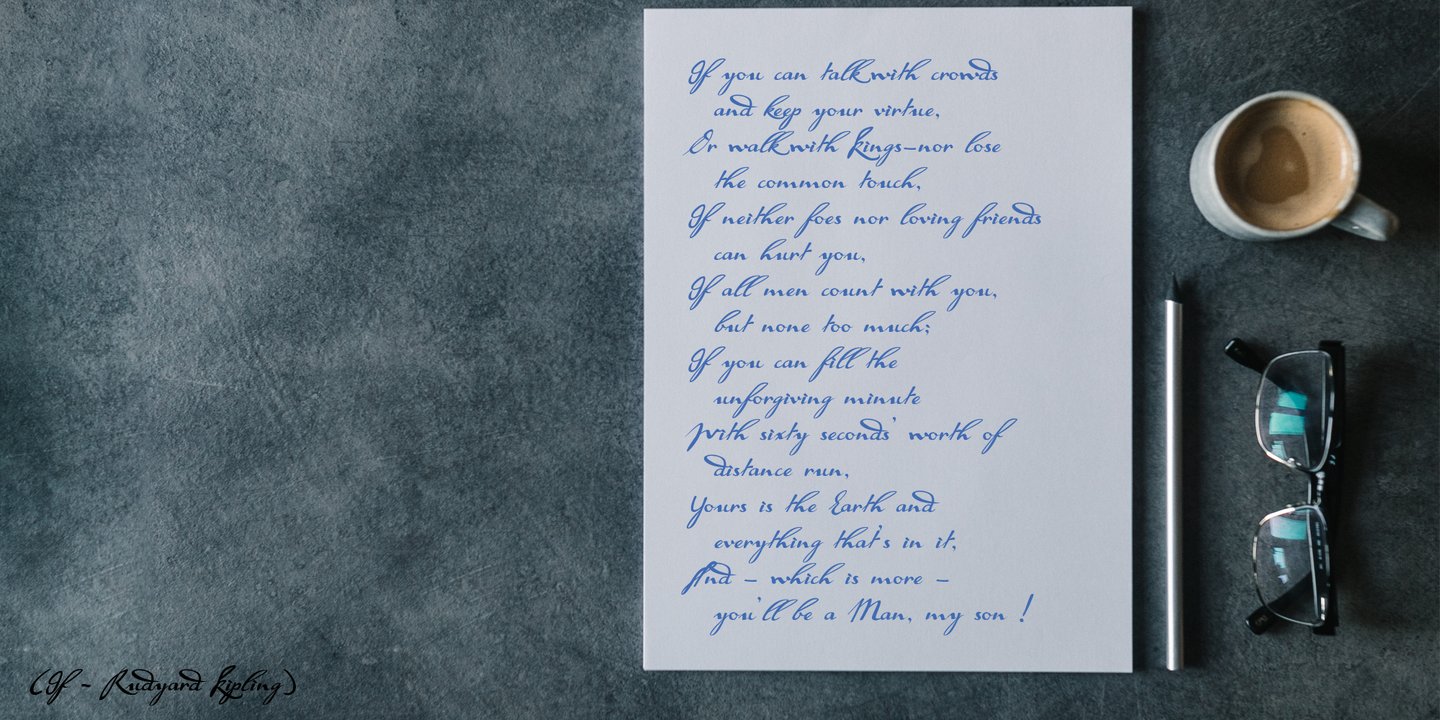 If you can talk with crowds
and keep your virtue,
Or walk with Kings—nor lose
the common touch,
If neither foes nor loving friends
can hurt you,
If all men count with you,
but none too much;
If you can fill the
unforgiving minute
With sixty seconds' worth of
distance run,
Yours is the Earth and
everything that's in it,
And – which is more –
you'll be a Man, my son !
(If - Rudyard Kipling)